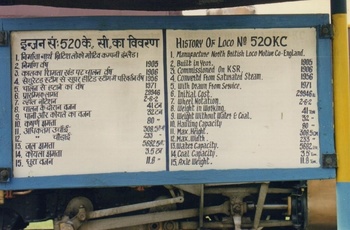 इन्जन सं: 520 के. सी. का विवरण
1. निर्माता नार्थ ब्रिटिश लोको मोटिव कम्पनी इंग्लैंड।
2. निर्माण वर्ष 1905
3. कालका शिमला खंड पर चालन वर्ष 1906
4. सैचुरेटेड स्टीम से सुपर हीटेड स्टीम में परिवर्तन वर्ष 1956
5. चालन से हटाने का वर्ष 1971
6. प्रारम्भिक लागत 29946
7. व्हील नोटेशन 2-6-2
8. चालन के दौरान वजन 41 टन
9. पानी और कोयले का वजन 32 टन
10. कर्षण क्षमता 80
11. अधिकतम उंचाई 308.5
12. चौडाई 233
13. जल क्षमता 5682
14. कोयला क्षमता 3.5 टन
15. धुरा वजन 11.8
HISTORY OF LOCO NO 520KC
1. Manufacturer North British Loco Motive Co-England.
2. Built in Year. 1905
3. Commissioned On KSR. 1906
4. Converted From Saturated Steam. 1956
5. With Drawn From Service. 1971
6. Initial Cost
7. Wheel Notation. 2-6-2
8. Weight in Working
9. Weight Without Water & Coal.
10. Hauling Capacity 80
11. Max. Height.
12. Max. Width. 233
13. Water Capacity. 5682
14. Coal Capacity.
15. Axle Weight. 11.8